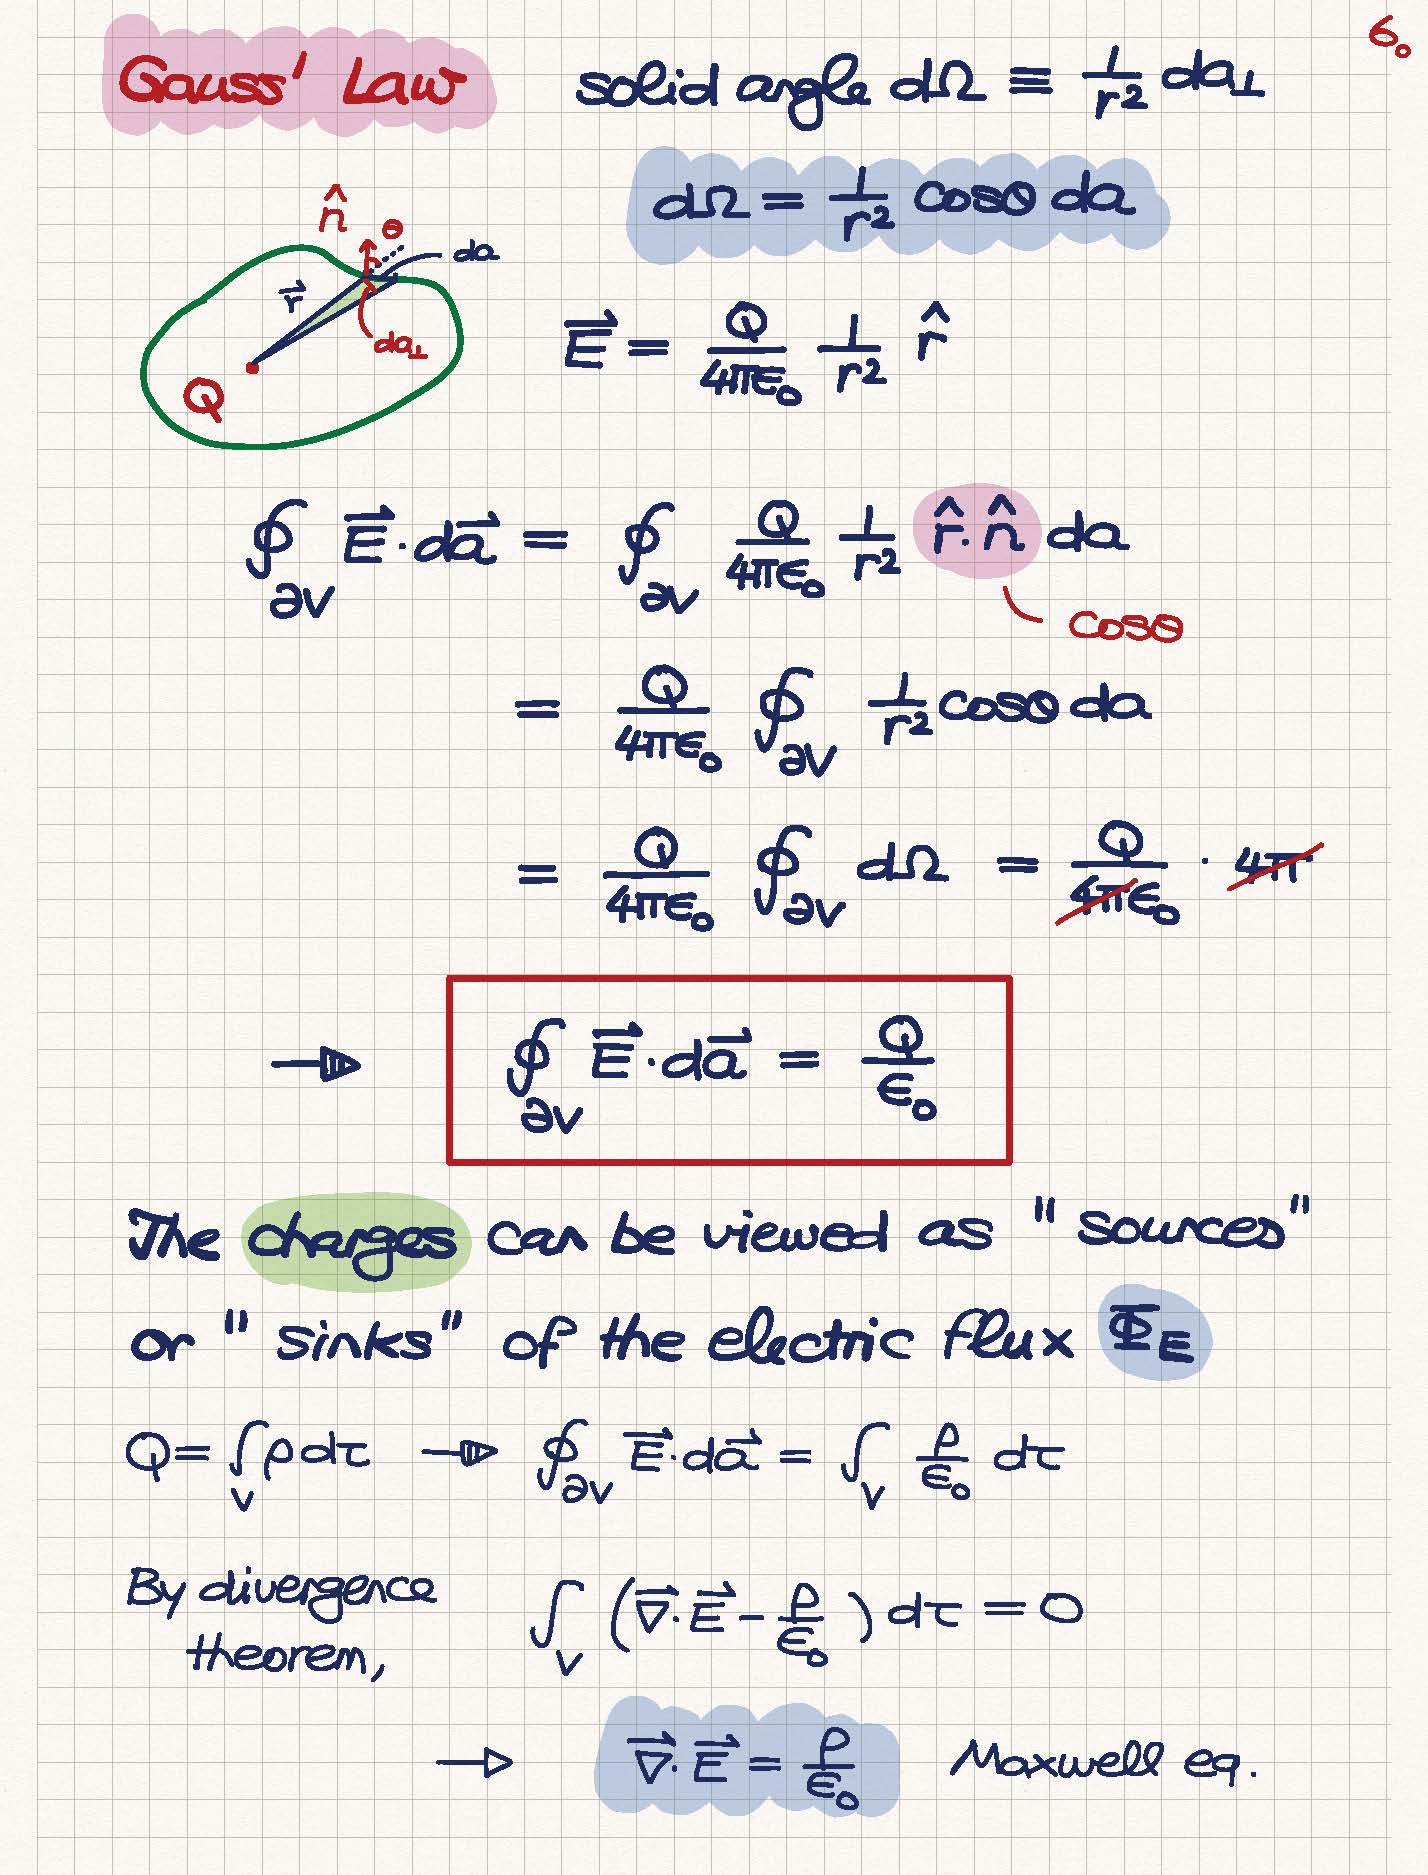 6.
Gauss' Law
solid angle dΩ ≡ 1/r² da⊥
dΩ = 1/r² cosθ da
n̂ θ da
r⃗
da⊥
Q
E⃗ = Q/4πε₀ 1/r² r̂
∮∂V E⃗·da⃗ = ∮∂V Q/4πε₀ 1/r² r̂·n̂ da
cosθ
= Q/4πε₀ ∮∂V 1/r² cosθ da
= Q/4πε₀ ∮∂V dΩ = Q/4πε₀ · 4π
∮∂V E⃗·da⃗ = Q/ε₀
The charges can be viewed as "sources"
or "sinks" of the electric flux Φ_E
Q = ∫V ρ dτ → ∮∂V E⃗·da⃗ = ∫V ρ/ε₀ dτ
By divergence
theorem,
∫V (∇⃗·E⃗ - ρ/ε₀) dτ = 0
→ ∇⃗·E⃗ = ρ/ε₀ Maxwell eq.